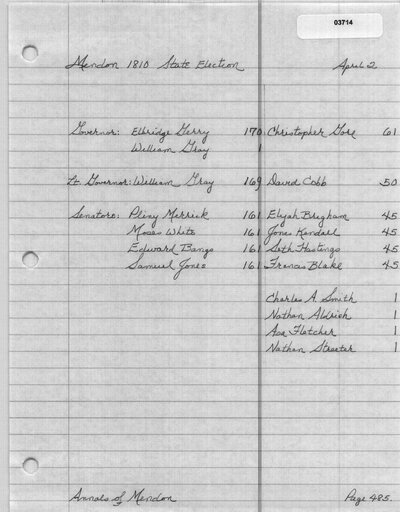 03714
Mendon 1810 State Election April 2
Governor: Elbridge Gerry 170 Christopher Gore 61
William Gray 1
Lt. Governor: William Gray 169 David Cobb 50
Senators: Pliny Merrick 161 Elijah Brigham 45
Moses White 161 Jonas Kendall 45
Edward Bangs 161 Seth Hastings 45
Samuel Jones 161 Francis Blake 45
Charles A Smith 1
Nathan Aldrich 1
Asa Fletcher 1
Nathan Streeter 1
Annals of Mendon Page 485.